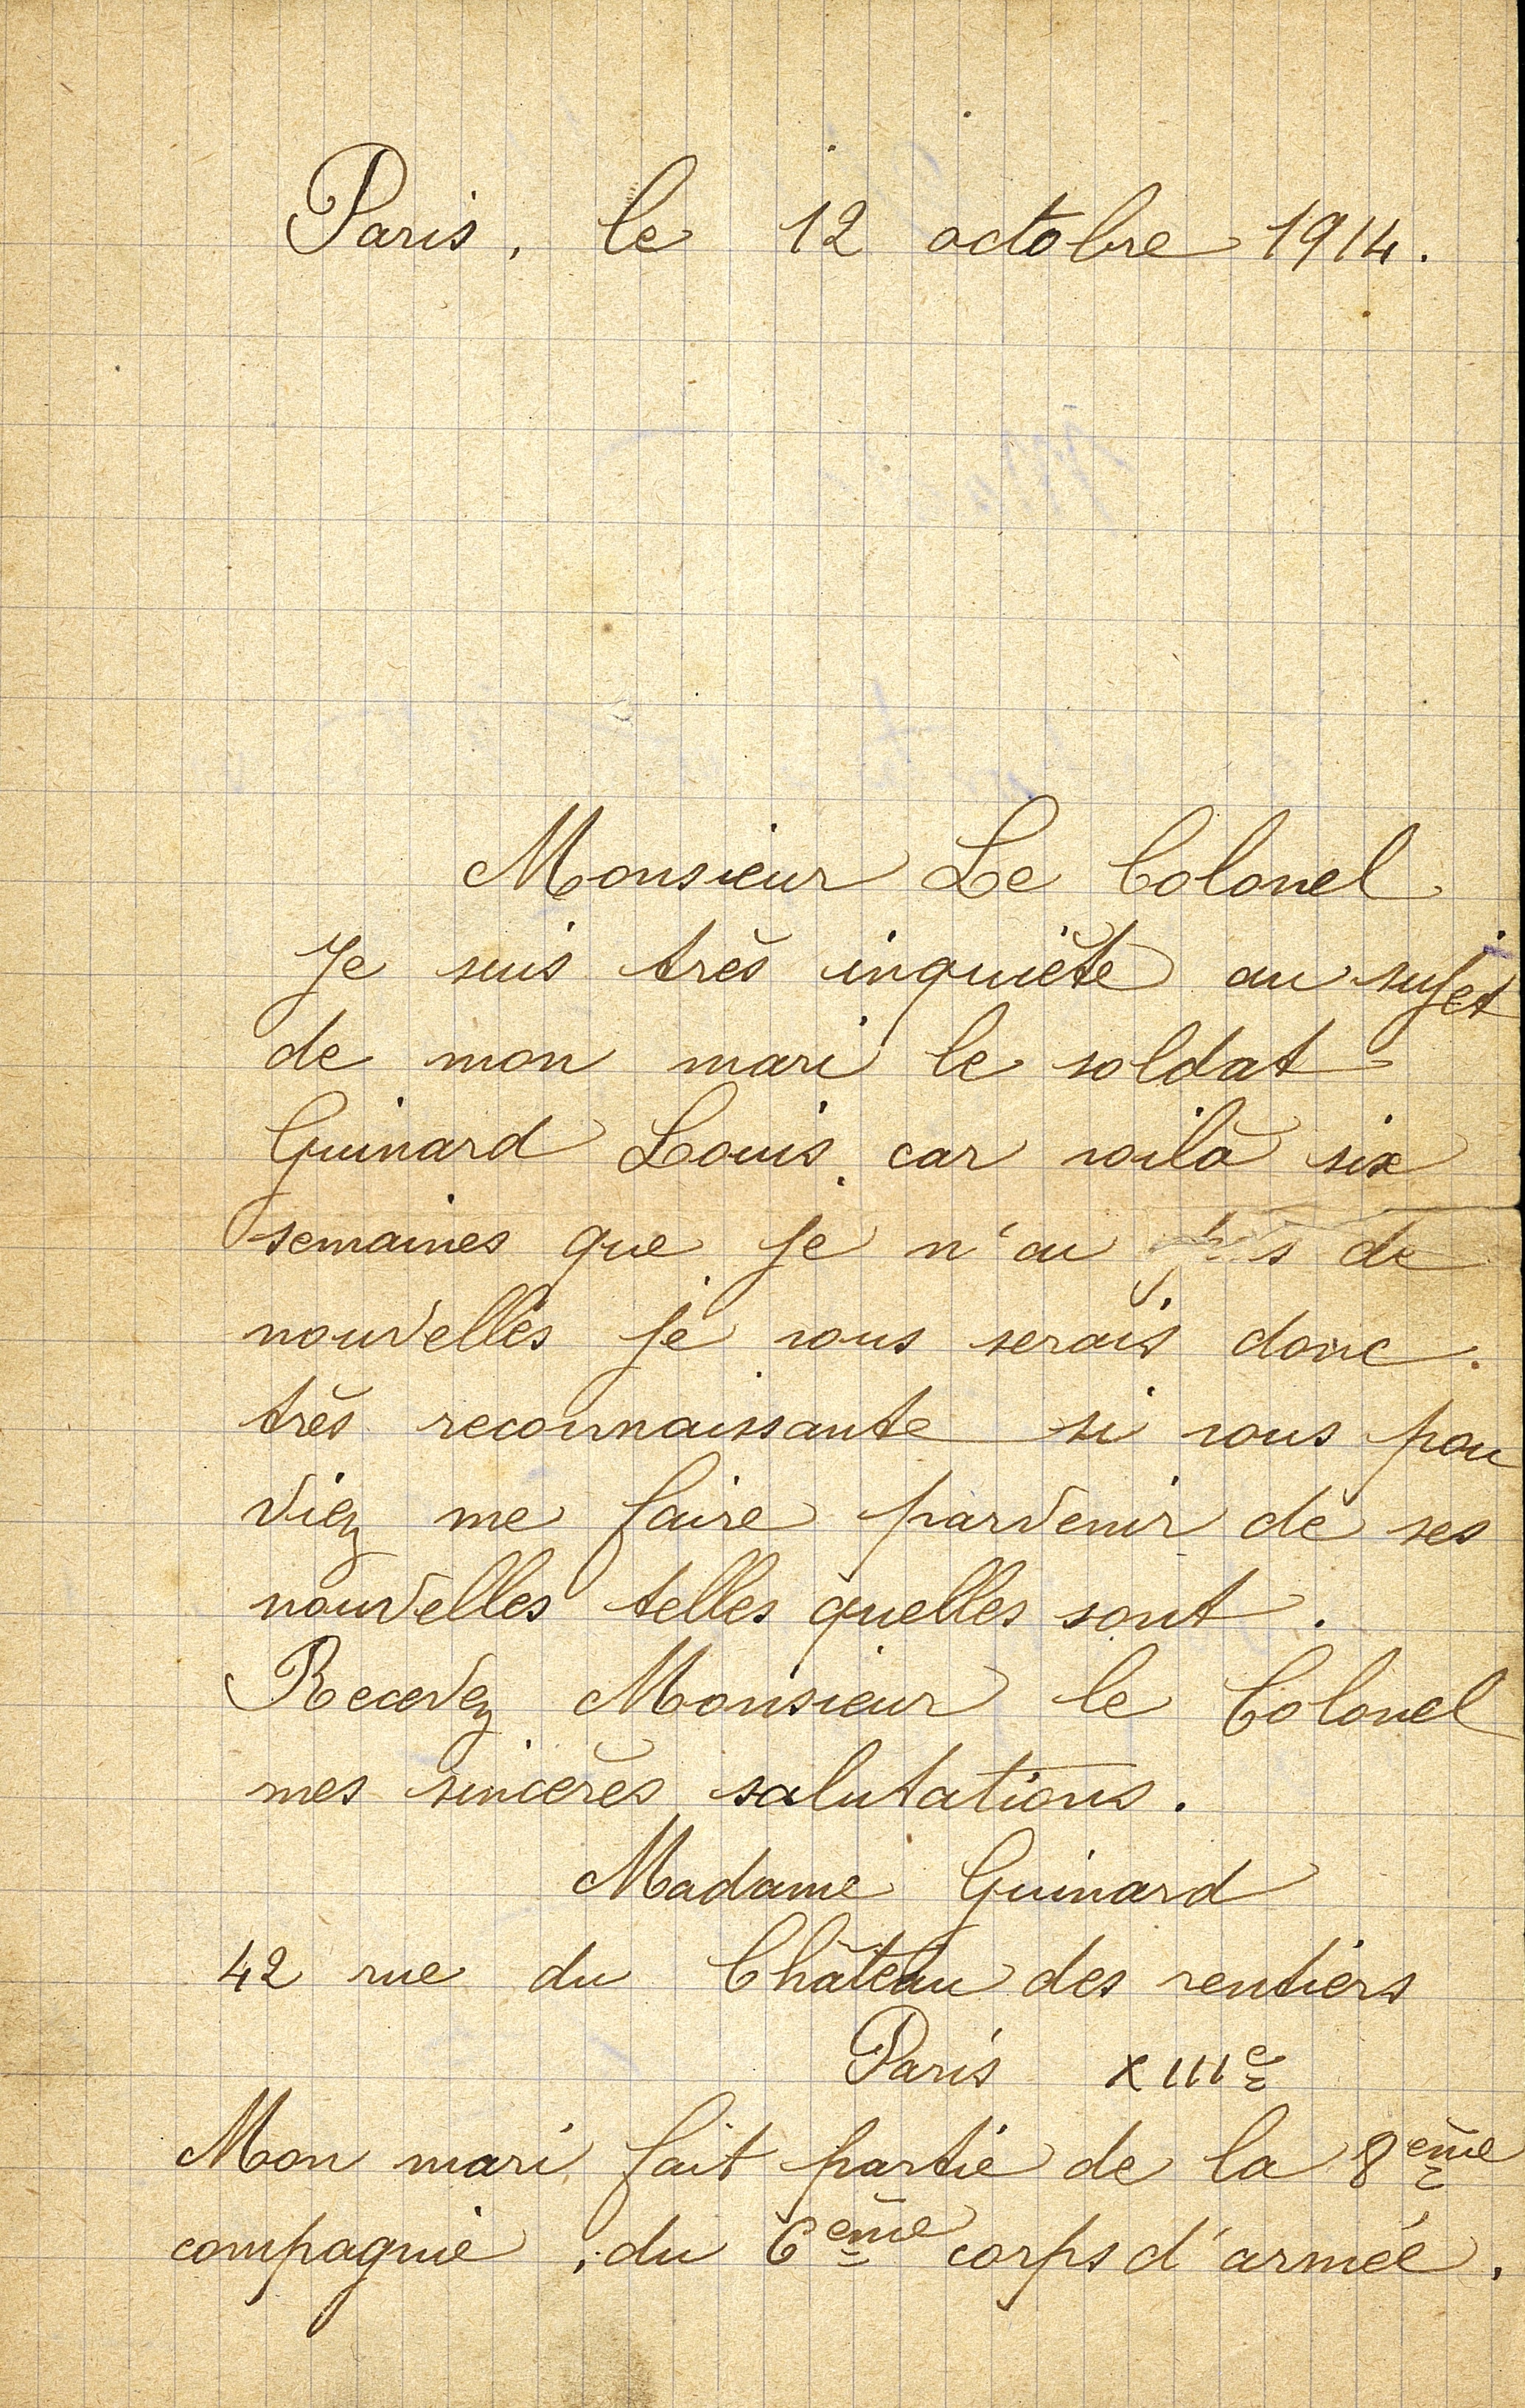 Paris, le 12 octobre 1914.
Monsieur Le Colonel
Je suis très inquiète au sujet
de mon mari le soldat
Guinard Louis, car voilà six
semaines que je n'ai de
nouvelles je vous serais donc
très reconnaissante si vous pou
viez me faire parvenir de ses
nouvelles telles quelles sont.
Recevez Monsieur le Colonel
mes sincères salutations.
Madame Guinard
42 rue du Château des rentiers
Paris XIIIe
Mon mari fait partie de la 8ème
compagnie, du 6ème corps d'armée.